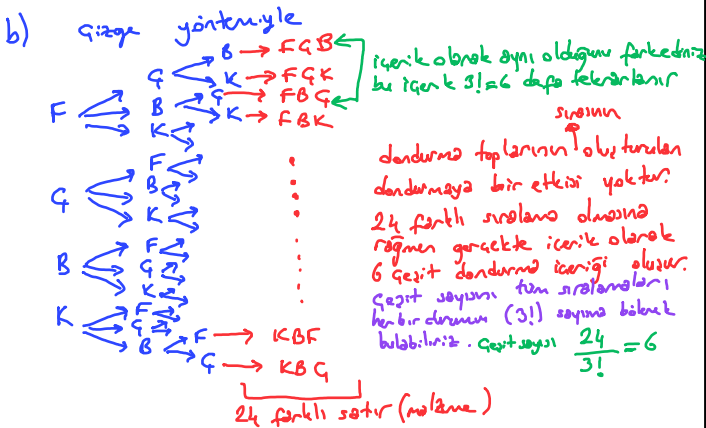 b) Çizge yöntemiyle
F
Ç
B → FÇB
K → FÇK
B
Ç → FBÇ
K → FBK
K
Ç
F
B
K
B
F
Ç
K
K
F
Ç
B
F → KBF
Ç → KBÇ
24 farklı satır (malzeme)
içerik olarak aynı olduğunu farkediniz
bu içerik 3!=6 defa tekrarlanır
sırasının
dondurma toplarının oluşturulan
dondurmaya bir etkisi yoktur.
24 farklı sıralama olmasına
rağmen gerçekte içerik olarak
6 çeşit dondurma içeriği oluşur.
Çeşit sayısını tüm sıralamaları
her bir durumun (3!) sayısına bölerek
bulabiliriz. Çeşit sayısı 24/3! = 6